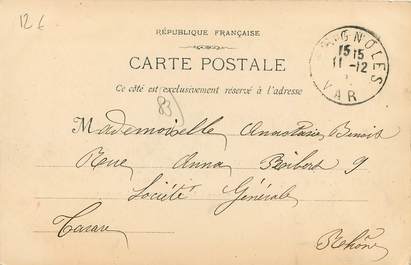 12 €
RÉPUBLIQUE FRANÇAISE
CARTE POSTALE
Ce côté est exclusivement réservé à l'adresse
BRIGNOLES
15 15
11 -12
VAR
83
Mademoiselle Anastasie Benoit
Rue Anna Bibert 9
Société Générale
Tarare
Rhône